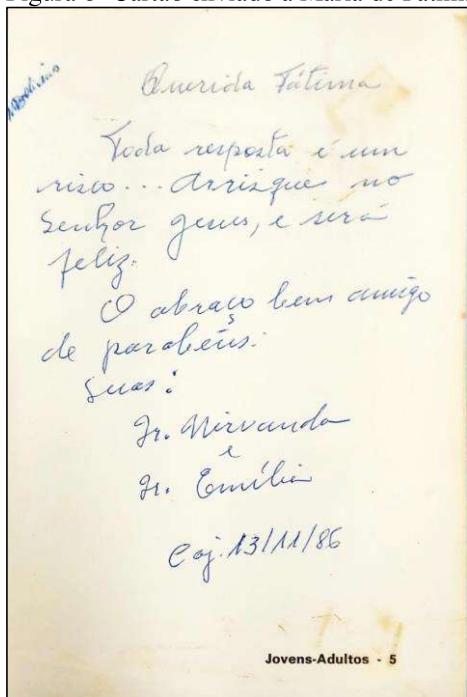 Querida Fátima
Toda resposta é um
risco... Arrisque no
Senhor Jesus, e será
feliz.
O abraço bem amigo
de parabéns.
Suas:
Ir. Nirvanda
e
Ir. Emília
Caj. 13/11/86
Jovens-Adultos - 5